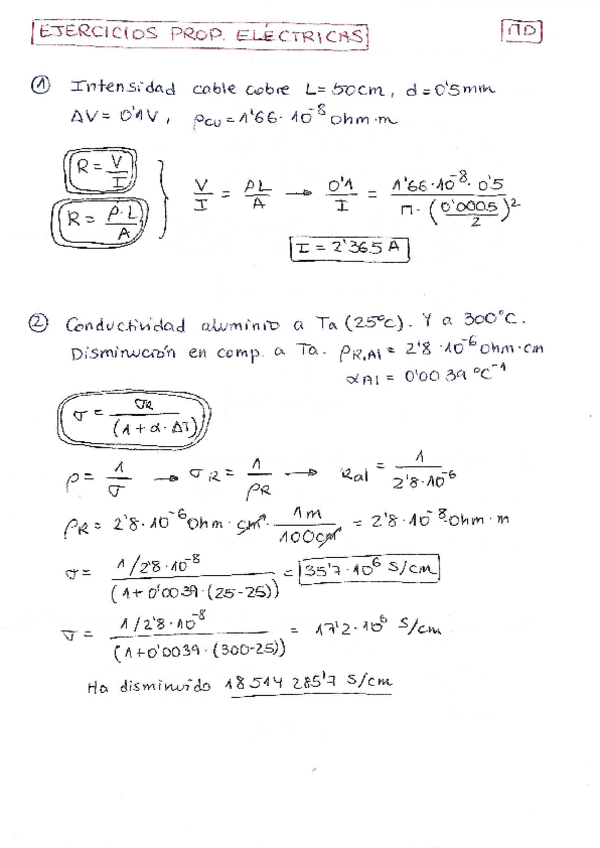 EJERCICIOS PROP. ELÉCTRICAS
MD
① Intensidad cable cobre L= 50cm, d=0'5mm
ΔV= 0'1V, ρcu = 1'66·10⁻⁸ Ohm·m
R = V/I
R = ρ·L/A
V/I = ρL/A → 0'1/I = 1'66·10⁻⁸·0'5 / π·(0'0005/2)²
I = 2'365 A
② Conductividad aluminio a Ta (25ºC). Y a 300ºC.
Disminución en comp. a Ta. ρR,Al = 2'8·10⁻⁶ Ohm·cm
αAl = 0'0039 ºC⁻¹
σ = σR / (1+α·ΔT)
ρ = 1/σ → σR = 1/ρR → Ral = 1/2'8·10⁻⁶
ρR = 2'8·10⁻⁶ Ohm·cm · 1m/100cm = 2'8·10⁻⁸ Ohm·m
σ = 1/2'8·10⁻⁸ / (1+0'0039·(25-25)) = 35'7·10⁶ S/cm
σ = 1/2'8·10⁻⁸ / (1+0'0039·(300-25)) = 17'2·10⁶ S/cm
Ha disminuido 18514285'7 S/cm